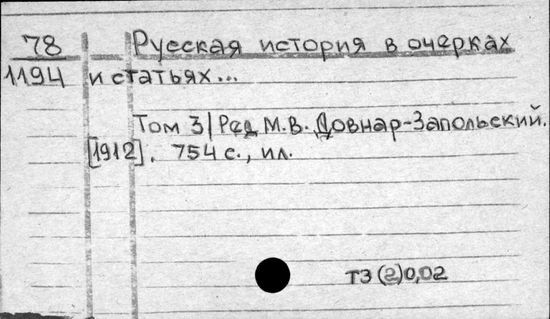 78
1194
Русская история в очерках
и статьях...
Том 3/Ред М.В. Довнар-Запольский.
[1912]. 754 с., ил.
Т3(2)0,02